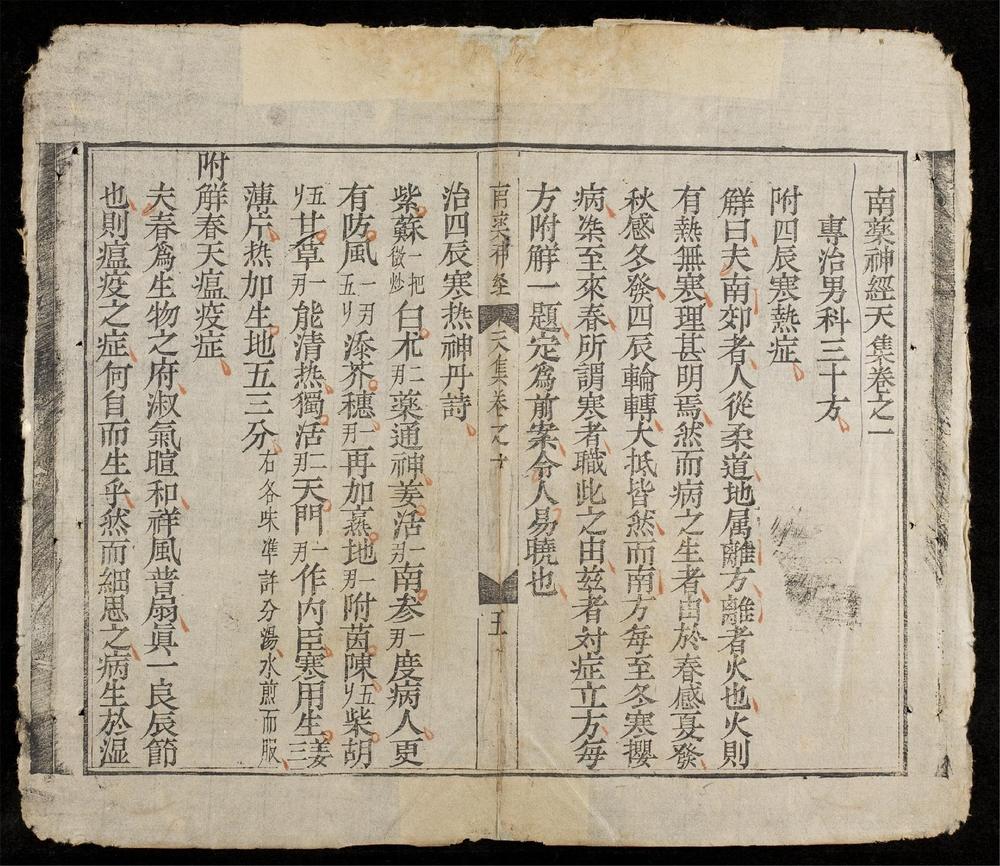 南藥神經天集卷之一
專治男科三十方
附四辰寒熱症
解曰夫南郊者人從柔道地属離方離者火也火則
有熱無寒理甚明焉然而病之生者由於春感夏發
秋感冬發四辰輪轉大抵皆然而南方每至冬寒攖
病染至來春所謂寒者職此之由兹者対症立方每
方附解一題定為前案令人易曉也
南藥神經 天集卷之 五
治四辰寒热神丹詩
紫蘇一把微炒白朮二刃藥通神姜活一刃南参一刃度病人更
有防風一刃五刂添芥穗一刃再加熹地一刃附茵陳五刂柴胡
五刂甘草一刃能清热獨活二刃天門一刃作内臣寒用生姜三
薄片热加生地五三分右各味準許分湯水煎而服
附解春天瘟疫症
夫春為生物之府淑氣暄和祥風普扇真一良辰節
也則瘟疫之症何自而生乎然而細思之病生於湿